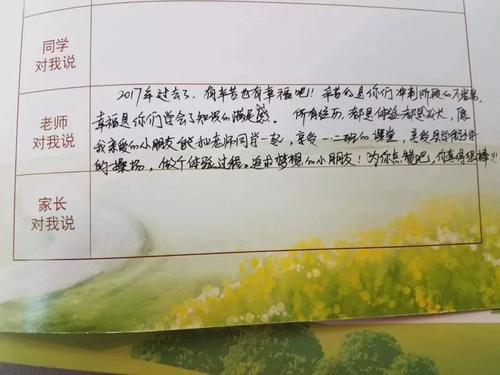 同学
对我说
老师
对我说
2017年过去了,有辛苦也有幸福吧!!辛苦的是你们冲刺阶段的不容易,
幸福是你们学会了知识的满足感。所有经历,都是体验都是成长,愿
我亲爱的小朋友能和老师同学一起,享受一二班的课堂,享受
的操场,做个体验过程、追求梦想的小朋友!为你点赞吧,你真得很棒!!!
家长
对我说